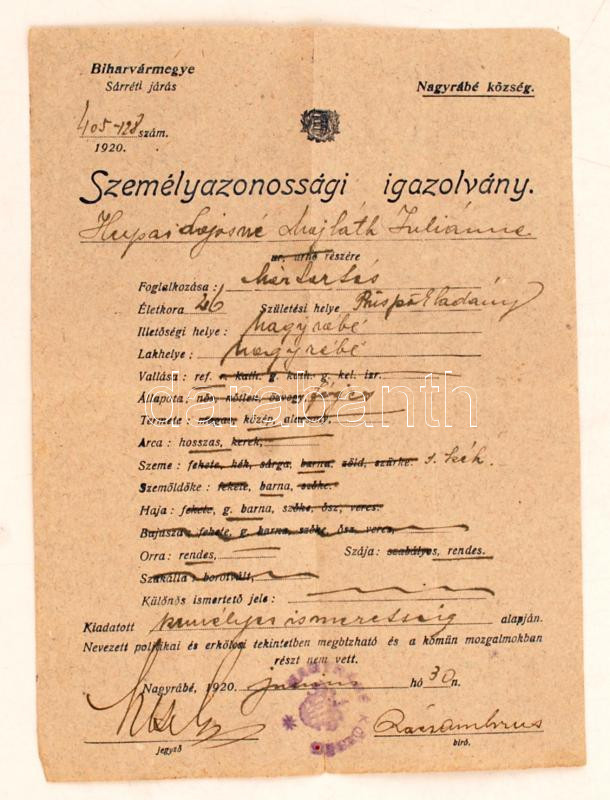 Biharvármegye
Sárréti járás
Nagyrábé község.
405-128 szám.
1920.
Személyazonossági igazolvány.
Hupai Lajosné Majláth Juliánna
ur, urnő részére
Foglalkozása:
Életkora 26 Születési helye Püspök Ladány
Illetőségi helye: Nagyrábé
Lakhelye: Nagyrábé
Vallása: ref. r. kath. g. kath. g. kel. izr.
Állapota, nős, nőtlen, özvegy, férjes
Termete: magas, közép, alacsony,
Arca: hosszas, kerek,
Szeme: fekete, kék, sárga, barna, zöld, szürke. s. kék.
Szemöldöke: fekete, barna, szőke.
Haja: fekete, g. barna, szőke, ősz, veres.
Bajusza: fekete, g. barna, szőke, ősz, veres,
Orra: rendes, Szája: szabályos, rendes.
Szakálla: borotvált,
Különös ismertető jele:
Kiadatott személyes ismeretség alapján.
Nevezett politikai és erkölcsi tekintetben megbizható és a kömün mozgalmokban
részt nem vett.
Nagyrábé, 1920. junius hó 30 n.
Rácz Ambrus
jegyző
biró.
darabanth